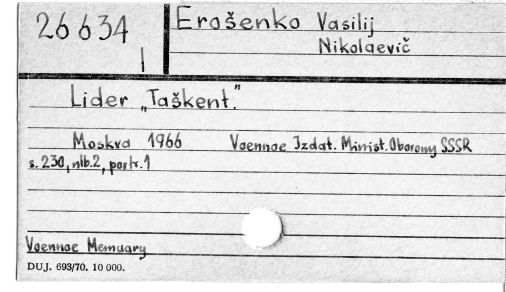 26634
Erošenko Vasilij
Nikolaevič
1
Lider „Taškent."
Moskva 1966 Voennoe Izdat. Minist. Oborony SSSR
s. 230, nlb. 2, portr. 1
Voennoe Memuary
DUJ. 693/70. 10 000.